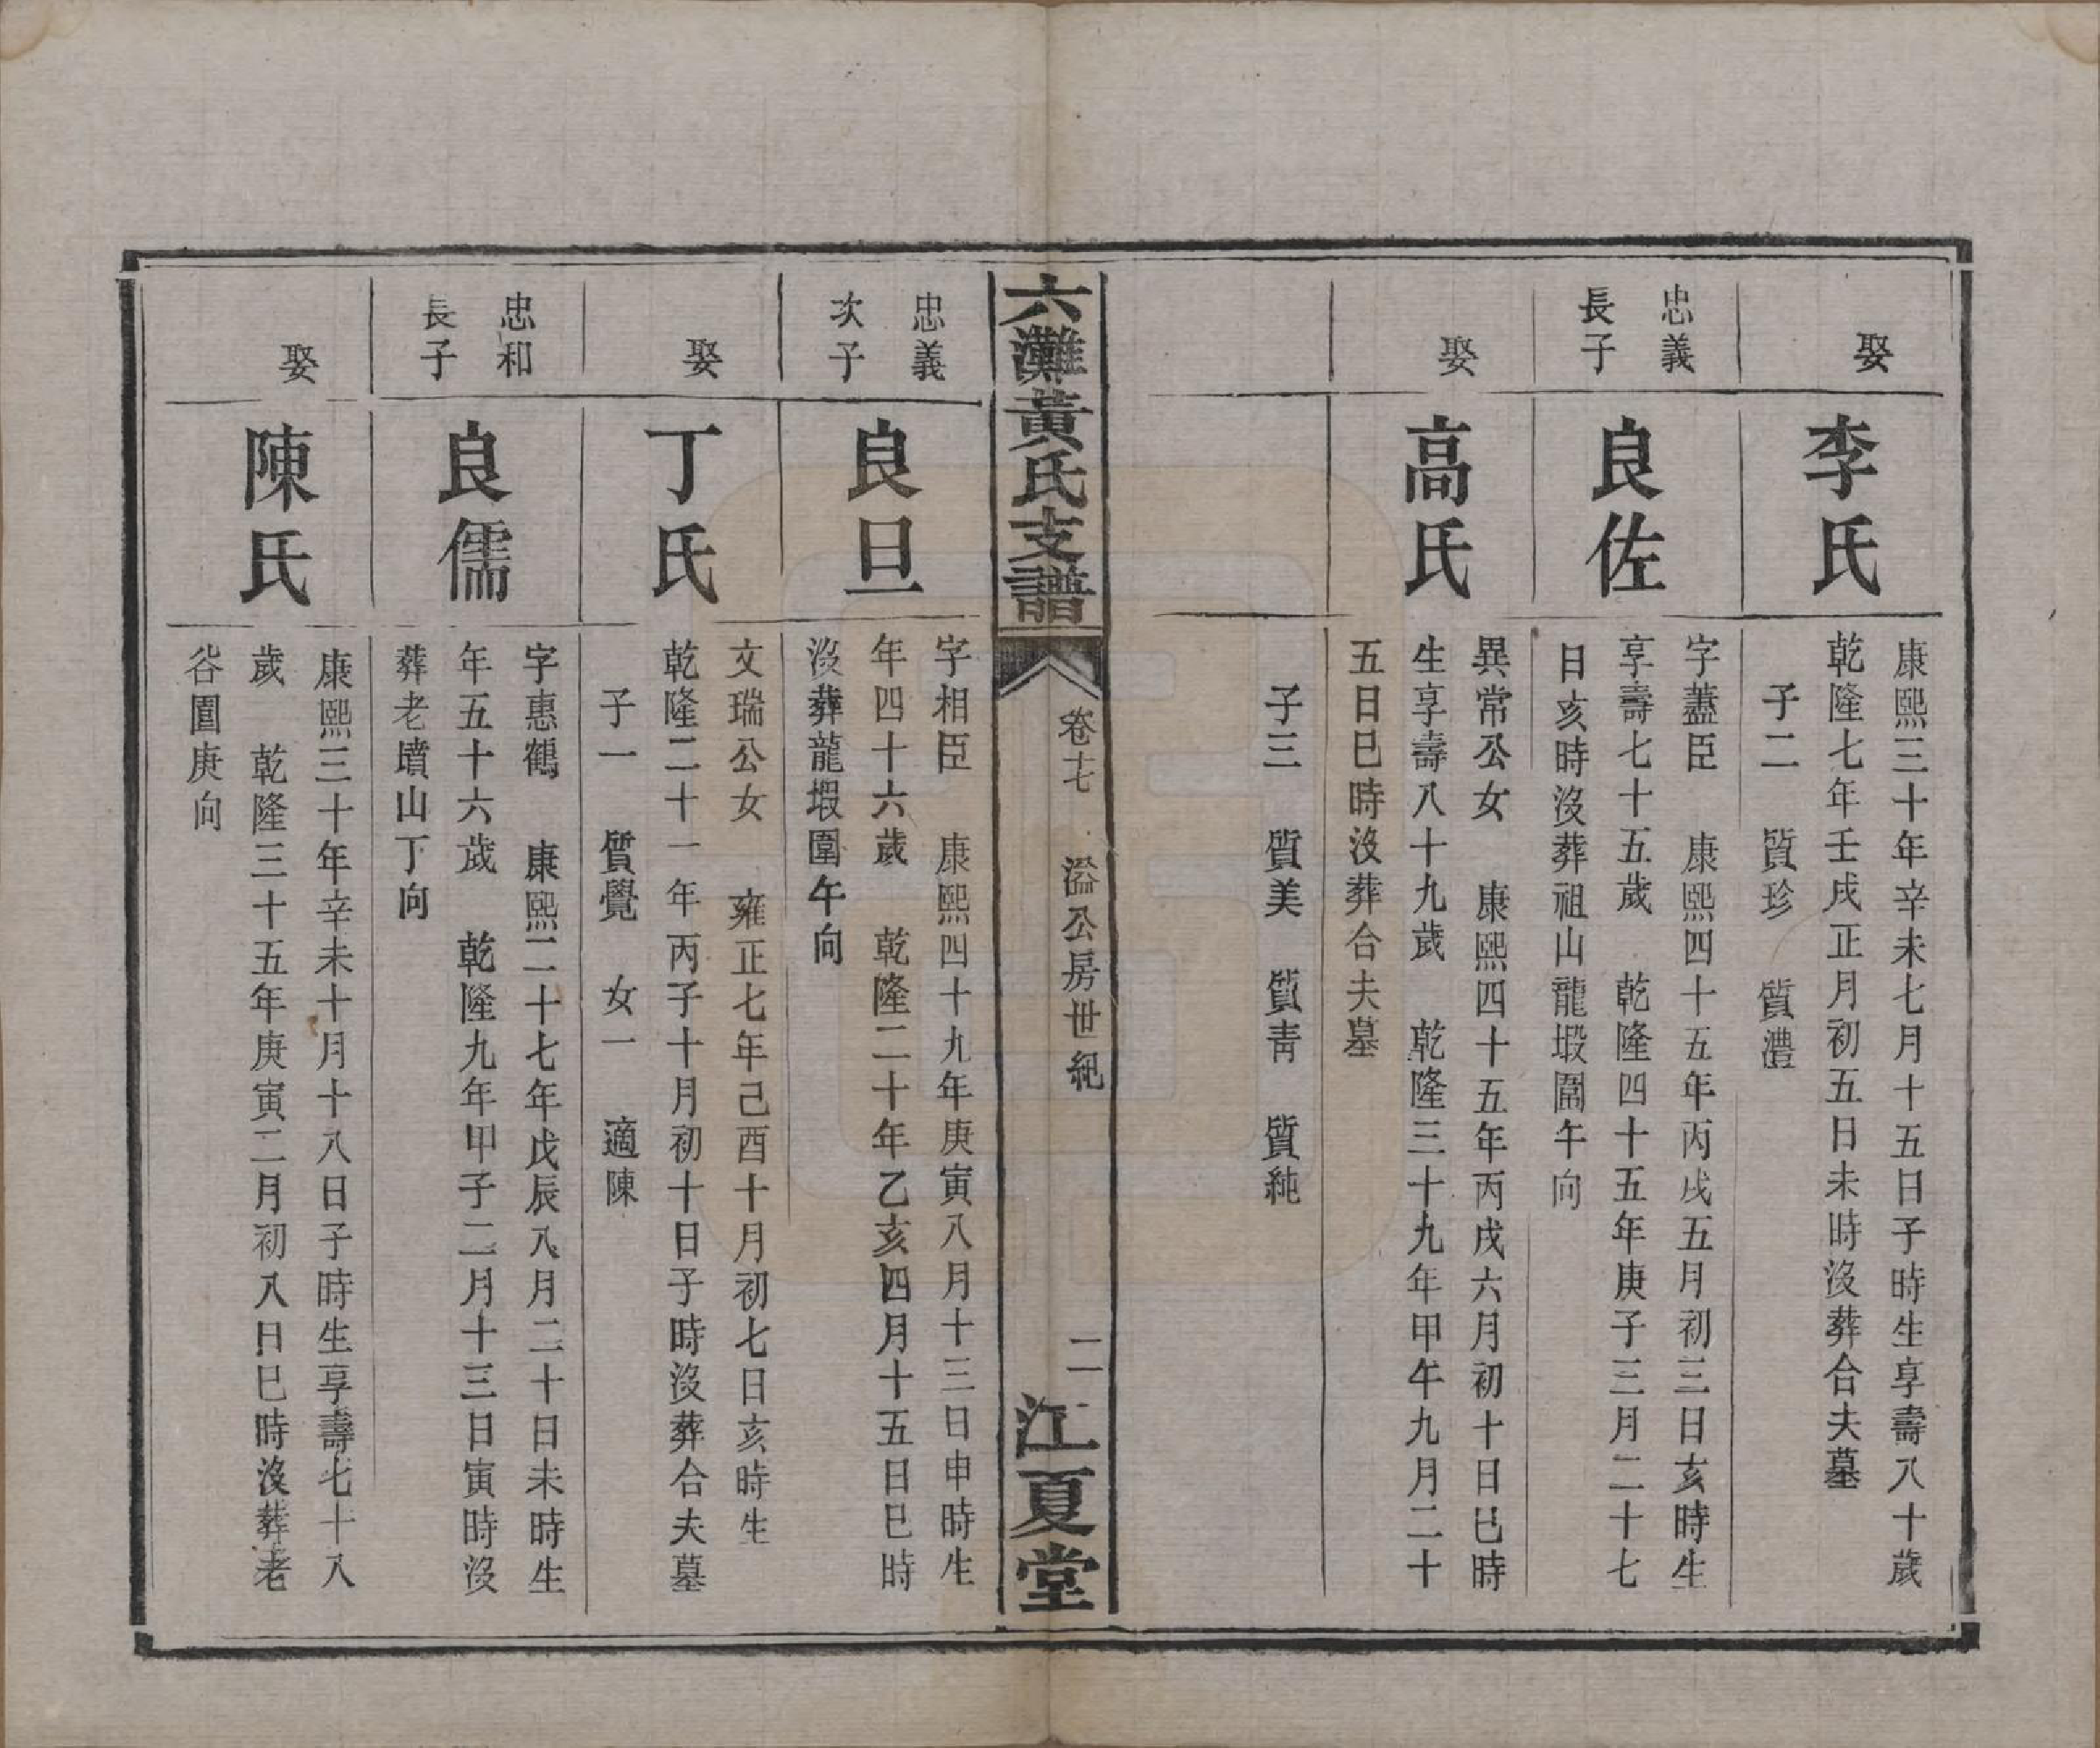 娶
李氏
康熙三十年辛未七月十五日子時生享壽八十歲
乾隆七年壬戌正月初五日未時沒葬合夫墓
子二　質珍　質澧
忠義
長子
良佐
字藎臣　康熙四十五年丙戌五月初三日亥時生
享壽七十五歲　乾隆四十五年庚子三月二十七
日亥時沒葬祖山龍塅圍午向
娶
高氏
異常公女　康熙四十五年丙戌六月初十日巳時
生享壽八十九歲　乾隆三十九年甲午九月二十
五日巳時沒葬合夫墓
子三　質美　質青　質純
六灘黃氏支譜
卷十七　溢公房世紀
二
江夏堂
忠義
次子
良旦
字相臣　康熙四十九年庚寅八月十三日申時生
年四十六歲　乾隆二十年乙亥四月十五日巳時
沒葬龍塅圍午向
娶
丁氏
文瑞公女　雍正七年己酉十月初七日亥時生
乾隆二十一年丙子十月初十日子時沒葬合夫墓
子一　質覺　女一　適陳
忠和
長子
良儒
字惠鶴　康熙二十七年戊辰八月二十日未時生
年五十六歲　乾隆九年甲子二月十三日寅時沒
葬老墳山丁向
娶
陳氏
康熙三十年辛未十月十八日子時生享壽七十八
歲　乾隆三十五年庚寅二月初八日巳時沒葬老
谷圍庚向